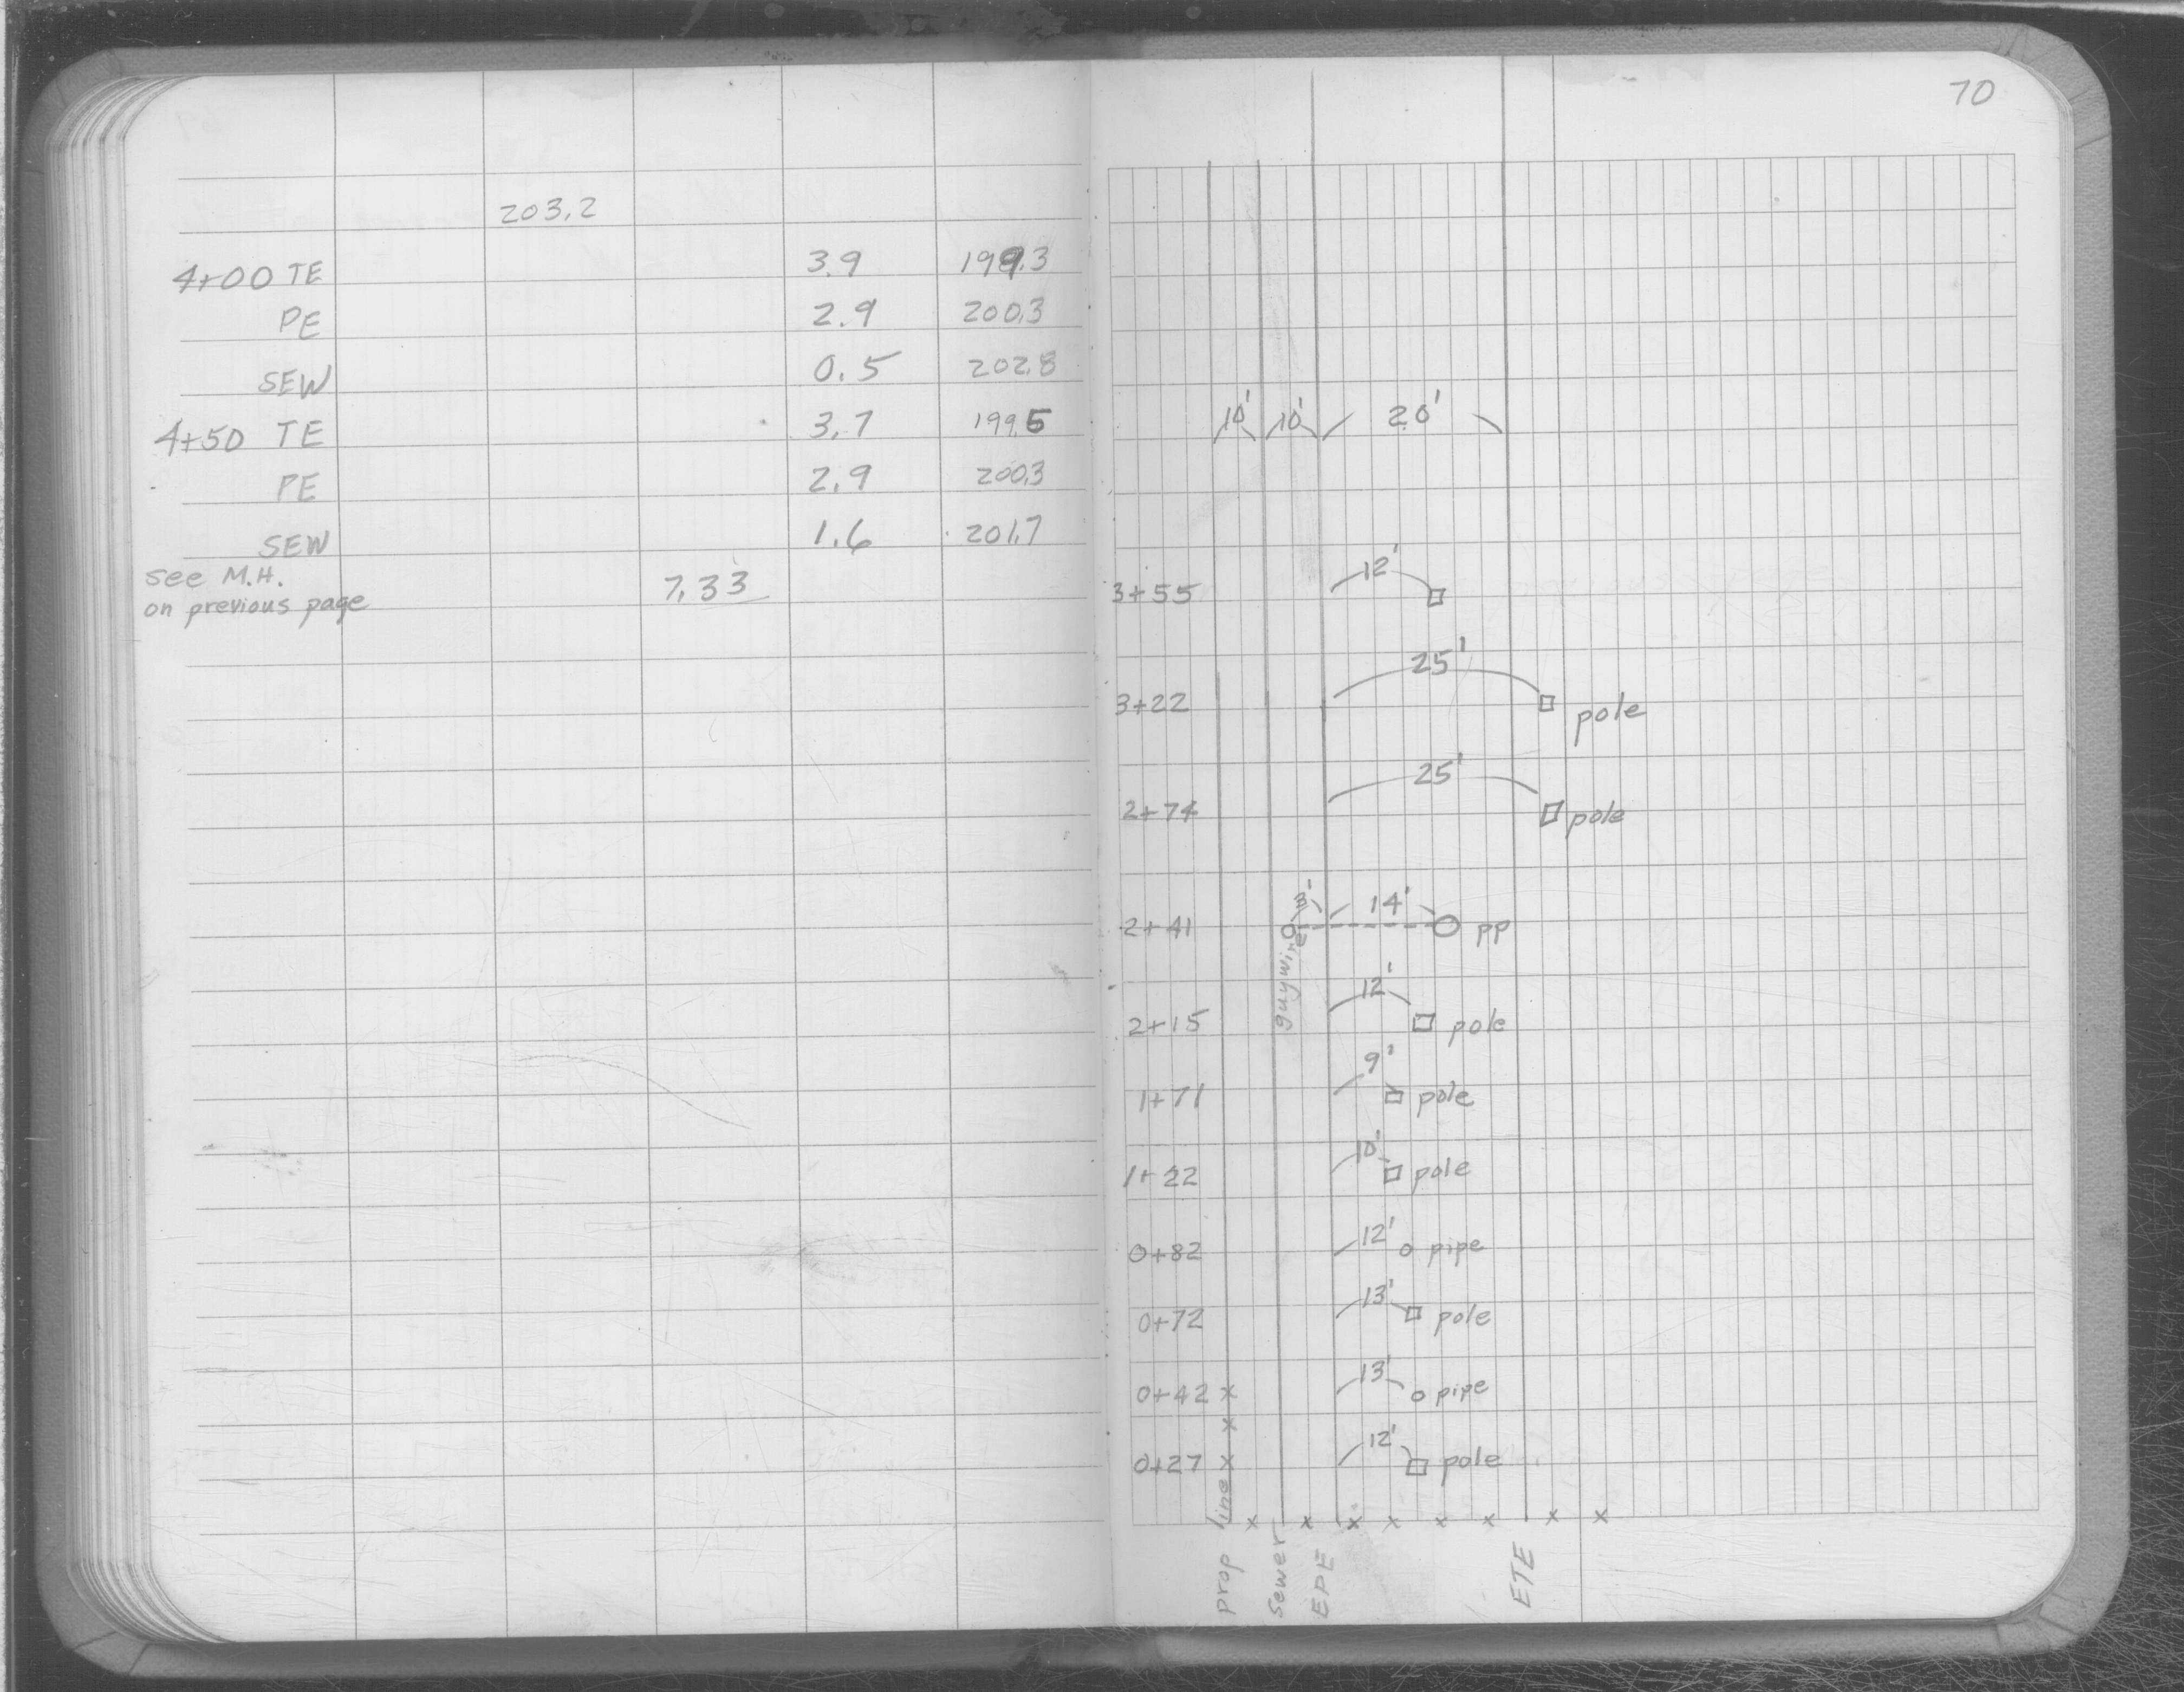 70
203.2
4+00 TE 3.9 199.3
PE 2.9 200.3
SEW 0.5 202.8
4+50 TE 3.7 199.5
PE 2.9 200.3
SEW 1.6 201.7
see M.H.
on previous page 7.33
10' 10' 20'
3+55 12'
3+22 25' pole
2+74 25' pole
2+41 3' 14' pp
guywire
2+15 12' pole
1+71 9' pole
1+22 10' pole
0+82 12' pipe
0+72 13' pole
0+42 x 13' pipe
x
0+27 x 12' pole
x x x x x x x x
prop line
Sewer
EPE
ETE